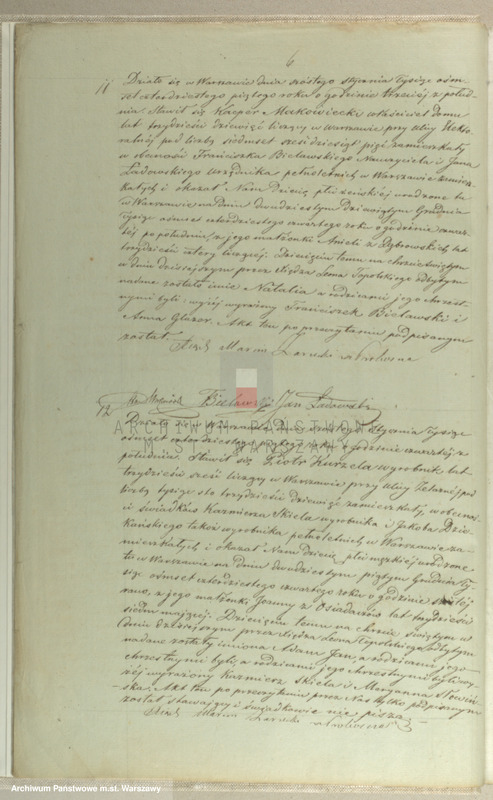 6
11 Działo się w Warszawie dnia szóstego stycznia tysiąc ośm-
set czterdziestego piątego roku o godzinie trzeciej z połud-
nia. Stawił się Kacper Makowiecki właściciel domu
lat trzydzieści dziewięć liczący w Warszawie przy ulicy Elekto-
ralnéj pod liczbą siedmset sześćdziesiąt pięć zamieszkały
w obecności Franciszka Bielawskiego Nauczyciela i Jana
Ladowskiego Urzędnika pełnoletnich w Warszawie zamiesz-
kałych i okazał Nam Dziecię płci żeńskiéj urodzone tu
w Warszawie na dniu dwudziestym dziewiątym Grudnia
tysiąc ośmset czterdziestego czwartego roku o godzinie czwar-
téj po południu, z jego małżonki Anieli z Dąbrowskich lat
trzydzieści cztery liczącéj. Dziecięciu temu na chrzcie świętym
w dniu dzisiejszym przez Xiędza Leona Topolskiego odbytym
nadane zostało imie Natalia a rodzicami jego chrzest-
nymi byli: wyżéj wyrażony Franciszek Bielawski i
Anna Glazer. Akt ten po przeczytaniu podpisanym
został.
Bielawski Jan Ladowski
12 Działo się w Warszawie Dnia szóstego Stycznia tysiąc
ośmset czterdziestego piątego roku o godzinie czwartéj z
południa. Stawił się Piotr Kurzela wyrobnik lat
trzydzieści sześć liczący w Warszawie przy ulicy Żelaznéj pod
liczbą tysiąc sto trzydzieści dziewięć zamieszkały, w obecnoś-
ci świadków Kazimierza Skiela wyrobnika i Jakóba Dzie-
kańskiego także wyrobnika pełnoletnich w Warszawie za-
mieszkałych i okazał Nam Dziecię płci męzkiéj urodzone
tu w Warszawie na dniu dwudziestym piątym Grudnia ty-
siąc ośmset czterdziestego czwartego roku o godzinie szóstéj
rano, z jego małżonki Joanny z lat trzydzieści
siedm mającéj. Dziecięciu temu na chrzcie świętym w
Dniu dzisiejszym przez Xiędza Leona Topolskiego odbytym
nadane zostały imiona Adam Jan, a rodzicami jego
chrzestnymi byli wy-
żéj wyrażony Kazimierz Skiela i Maryanna Słowiń-
ska. Akt ten po przeczytaniu przez Nas tylko podpisanym
został stawający i świadkowie nie piszą.
ARCHIWUM PAŃSTWOWE
M.ST. WARSZAWY
Archiwum Państwowe m.st. Warszawy